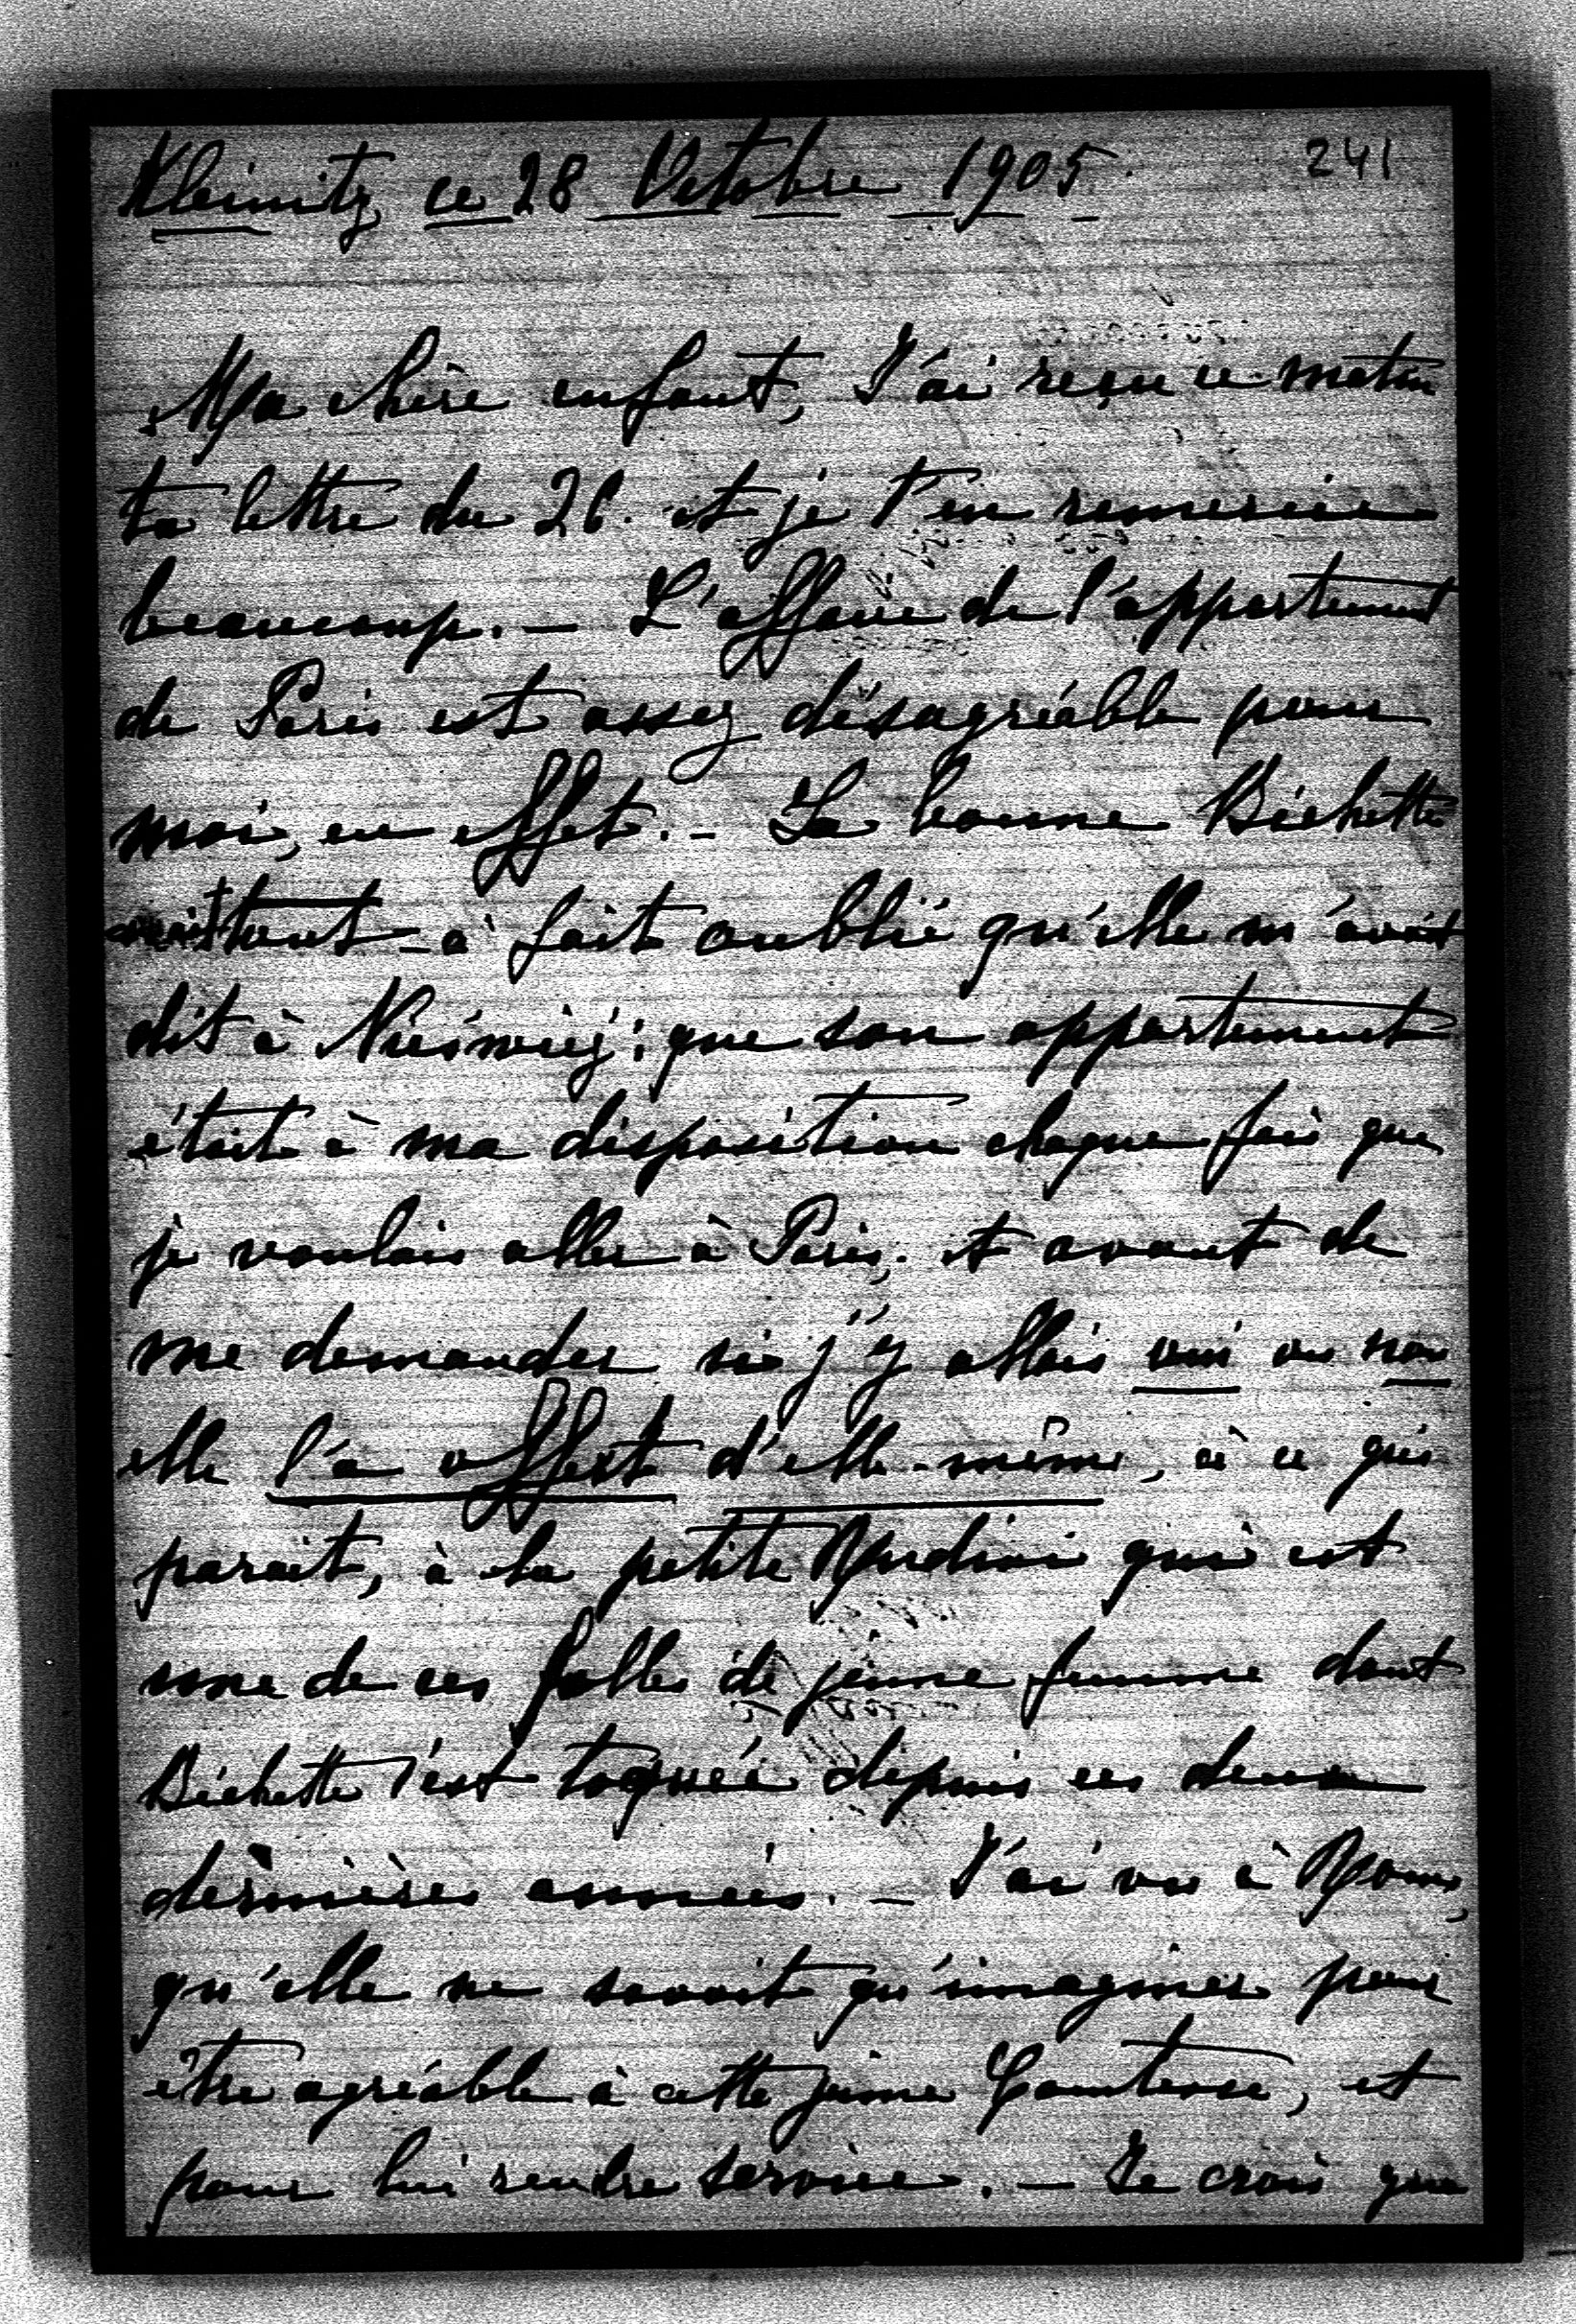 Kleinitz ce 28 Octobre 1905. 241
Ma chère enfant, J'ai reçu ce matin
ta lettre du 26. et je t'en remercie
beaucoup. — L'affaire de l'appartement
de Paris est assez désagréable pour
moi, en effet. — La bonne Bichette
avait tout-à fait oublié qu'elle m'avait
dit à Nieśwież: que son appartement
était à ma disposition chaque fois que
je voulais aller à Paris, et avant de
me demander si j'y allais oui ou non
elle l'a offert d'elle-même, à ce qui
parait, à la petite Rudini qui est
une de ces folles de jeune femme dont
Bichette s'est toquée depuis ces deux
dernières années. — J'ai vu à Rome,
qu'elle ne savait qu'imaginer pour
être agréable à cette jeune Comtesse, et
pour lui rendre service. — Je crois que